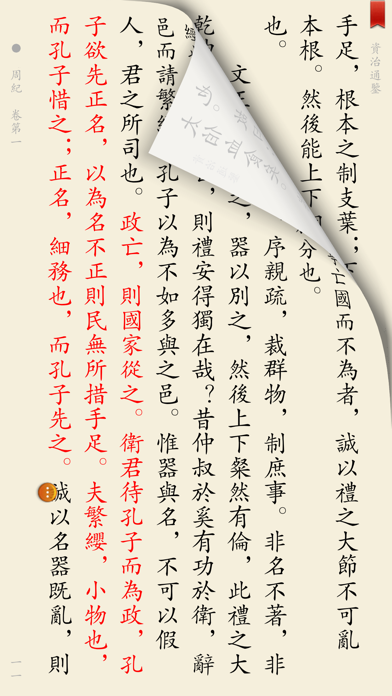 資治通鑒
手足，根本之制支葉；
本根。然後能上下相分也。
國而不為者，誠以禮之大節不可亂
也。
序親疏，裁群物，制庶事。非名不著，非
文
之，器以別之，然後上下粲然有倫，此禮之大
乾
，則禮安得獨在哉？昔仲叔於奚有功於衛，辭
邑而請繁
孔子以為不如多與之邑。惟器與名，不可以假
人，君之所司也。政亡，則國家從之。衛君待孔子而為政，孔
子欲先正名，以為名不正則民無所措手足。夫繁纓，小物也，
而孔子惜之；正名，細務也，而孔子先之。誠以名器既亂，則
周紀 卷第一
一一